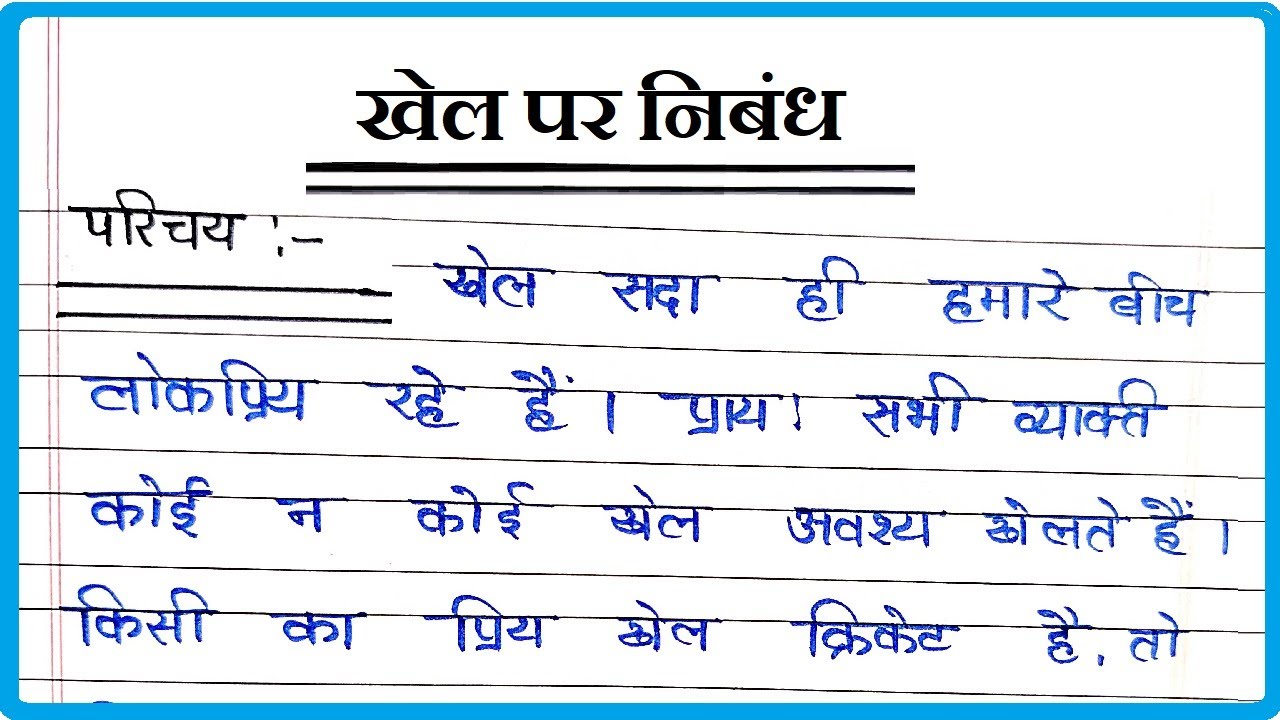 खेल पर निबंध
परिचय :-
खेल सदा ही हमारे बीच
लोकप्रिय रहे हैं। प्राय: सभी व्यक्ति
कोई न कोई खेल अवश्य खेलते हैं।
किसी का प्रिय खेल क्रिकेट है, तो